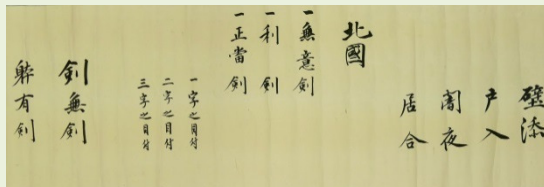 壁添
戸入
闇夜
居合
北國
一無意剣
一利剣
一正當剣
一字之目付
二字之目付
三字之目付
剣無剣
躰有剣